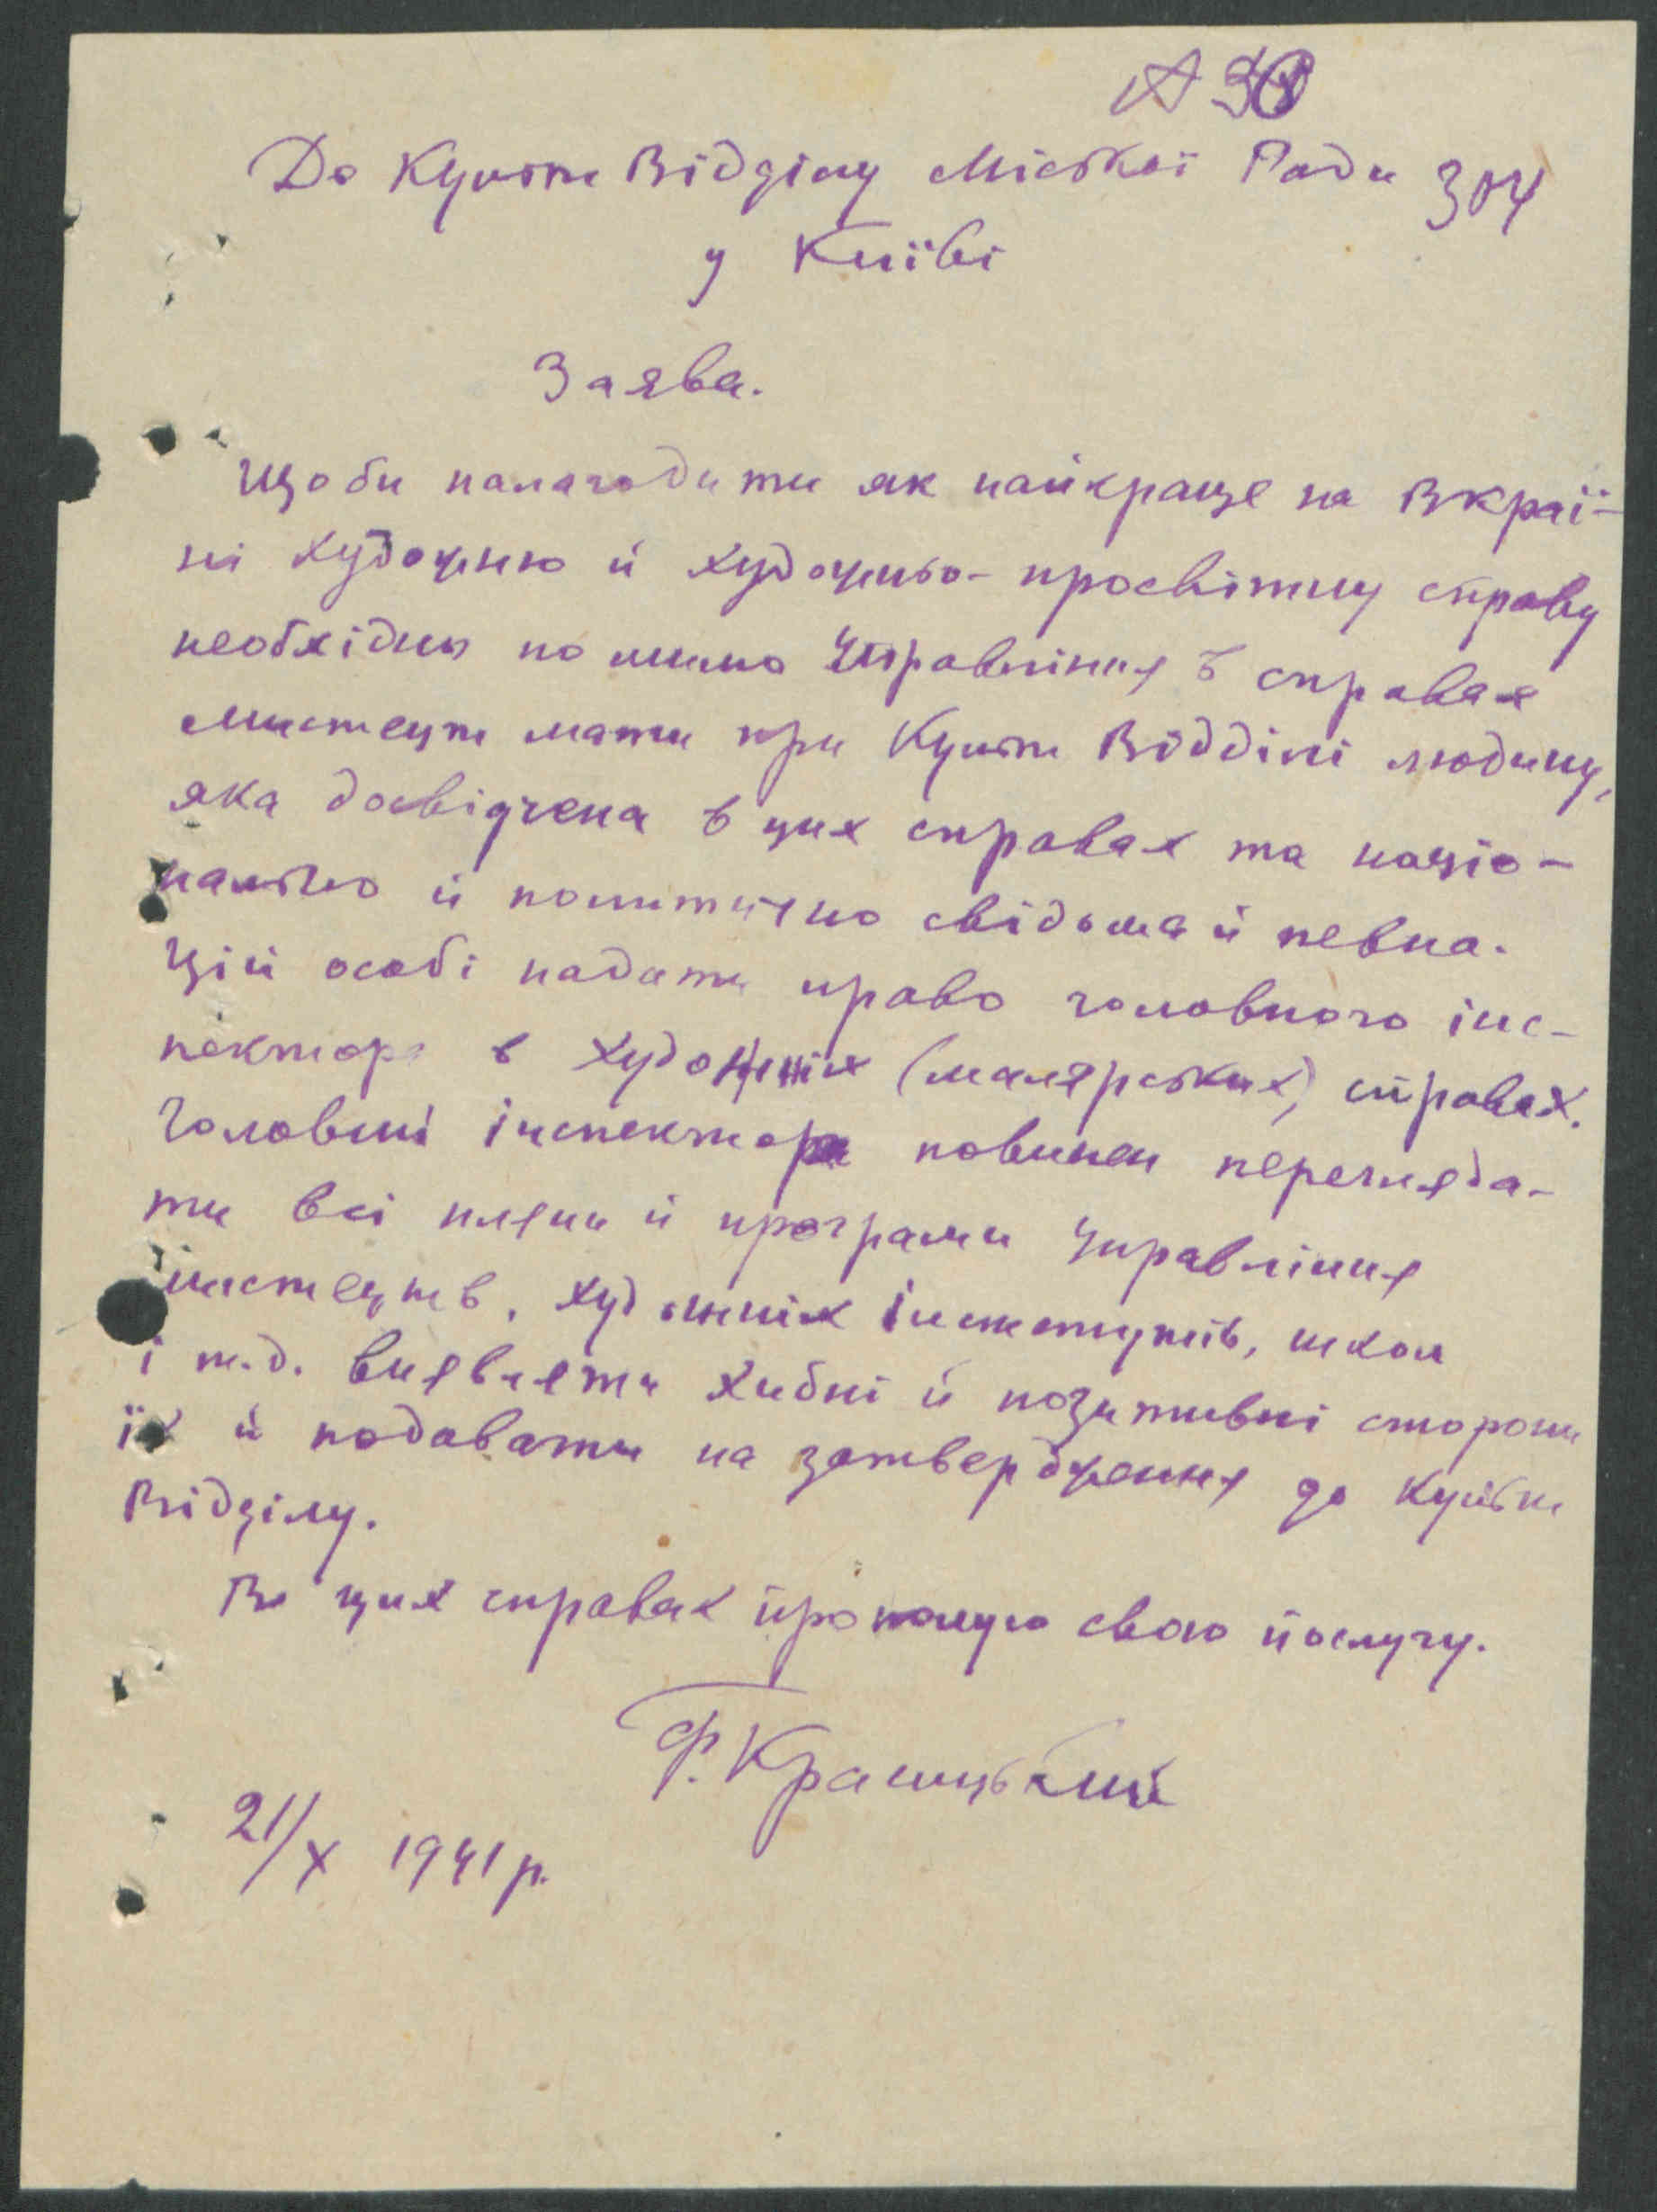 До Культ Відділу Міської Ради 304
у Київі
Заява.
Щоби налагодити як найкраще на Вкраї-
ні художню й художньо-просвітну справу
необхідно по мимо Управління в справах
мистецтв мати при Культ Відділі людину,
яка досвідчена в цих справах та націо-
нально й политично свідома й певна.
Цій особі надати право головного інс-
пектора в художніх (малярських) справах.
Головний інспектор повинен перегляда-
ти всі пляни й програми Управління
мистецтв, художніх інститутів, школ
і т.д. виявляти хибні й позитивні сторони
їх й подавати на затвердження до Культ
Відділу.
В цих справах пропоную свою послугу.
Ф. Красицький
21/X 1941 р.